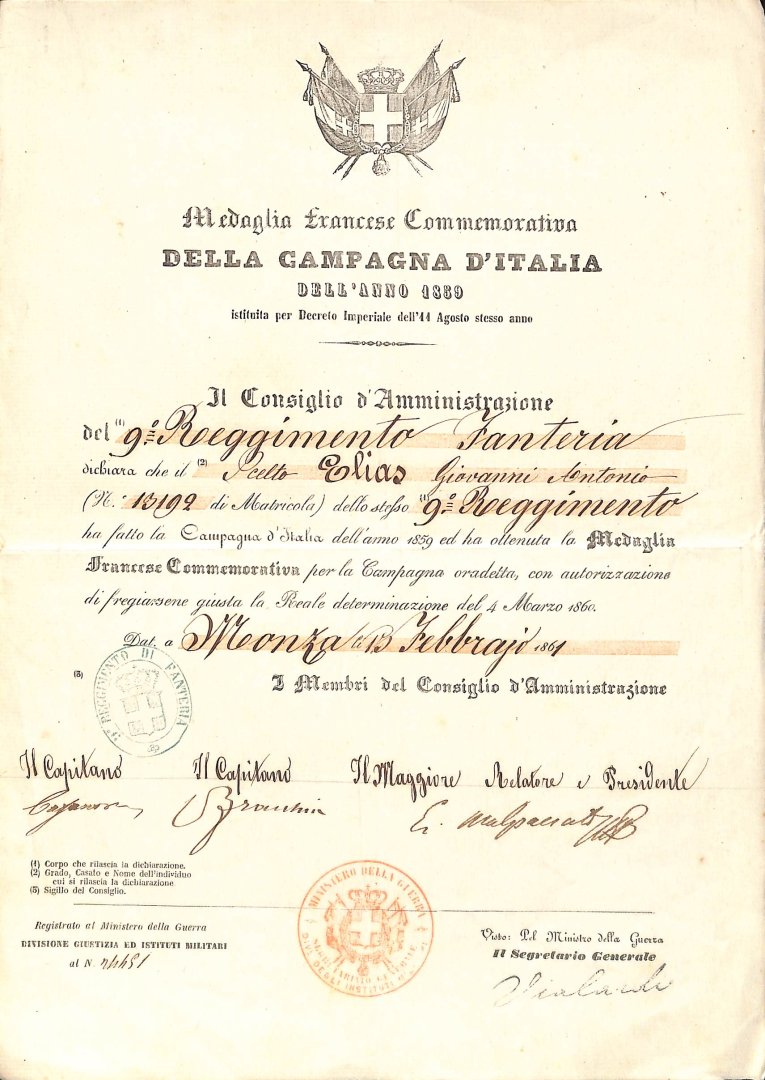 Medaglia Francese Commemorativa
DELLA CAMPAGNA D'ITALIA
DELL'ANNO 1859
istituita per Decreto Imperiale dell'11 Agosto stesso anno
Il Consiglio d'Amministrazione
del (1) 9.º Reggimento Fanteria
dichiara che il (2) Scelto Elias Giovanni Antonio
(N.º 13192 di Matricola) dello stesso (1) 9.º Reggimento
ha fatto la Campagna d'Italia dell'anno 1859 ed ha ottenuta la Medaglia
Francese Commemorativa per la Campagna oradetta, con autorizzazione
di fregiarsene giusta la Reale determinazione del 4 Marzo 1860.
Dat. a Monza li 13 Febbrajo 1861
(3)
I Membri del Consiglio d'Amministrazione
9º REGGIMENTO DI FANTERIA
Il Capitano Il Capitano Il Maggiore Relatore e Presidente
(1) Corpo che rilascia la dichiarazione.
(2) Grado, Casato e Nome dell'individuo
cui si rilascia la dichiarazione
(3) Sigillo del Consiglio.
MINISTERO DELLA GUERRA
SEGRETARIATO GENERALE
Registrato al Ministero della Guerra
DIVISIONE GIUSTIZIA ED ISTITUTI MILITARI
al N.
Visto: Pel Ministro della Guerra
Il Segretario Generale